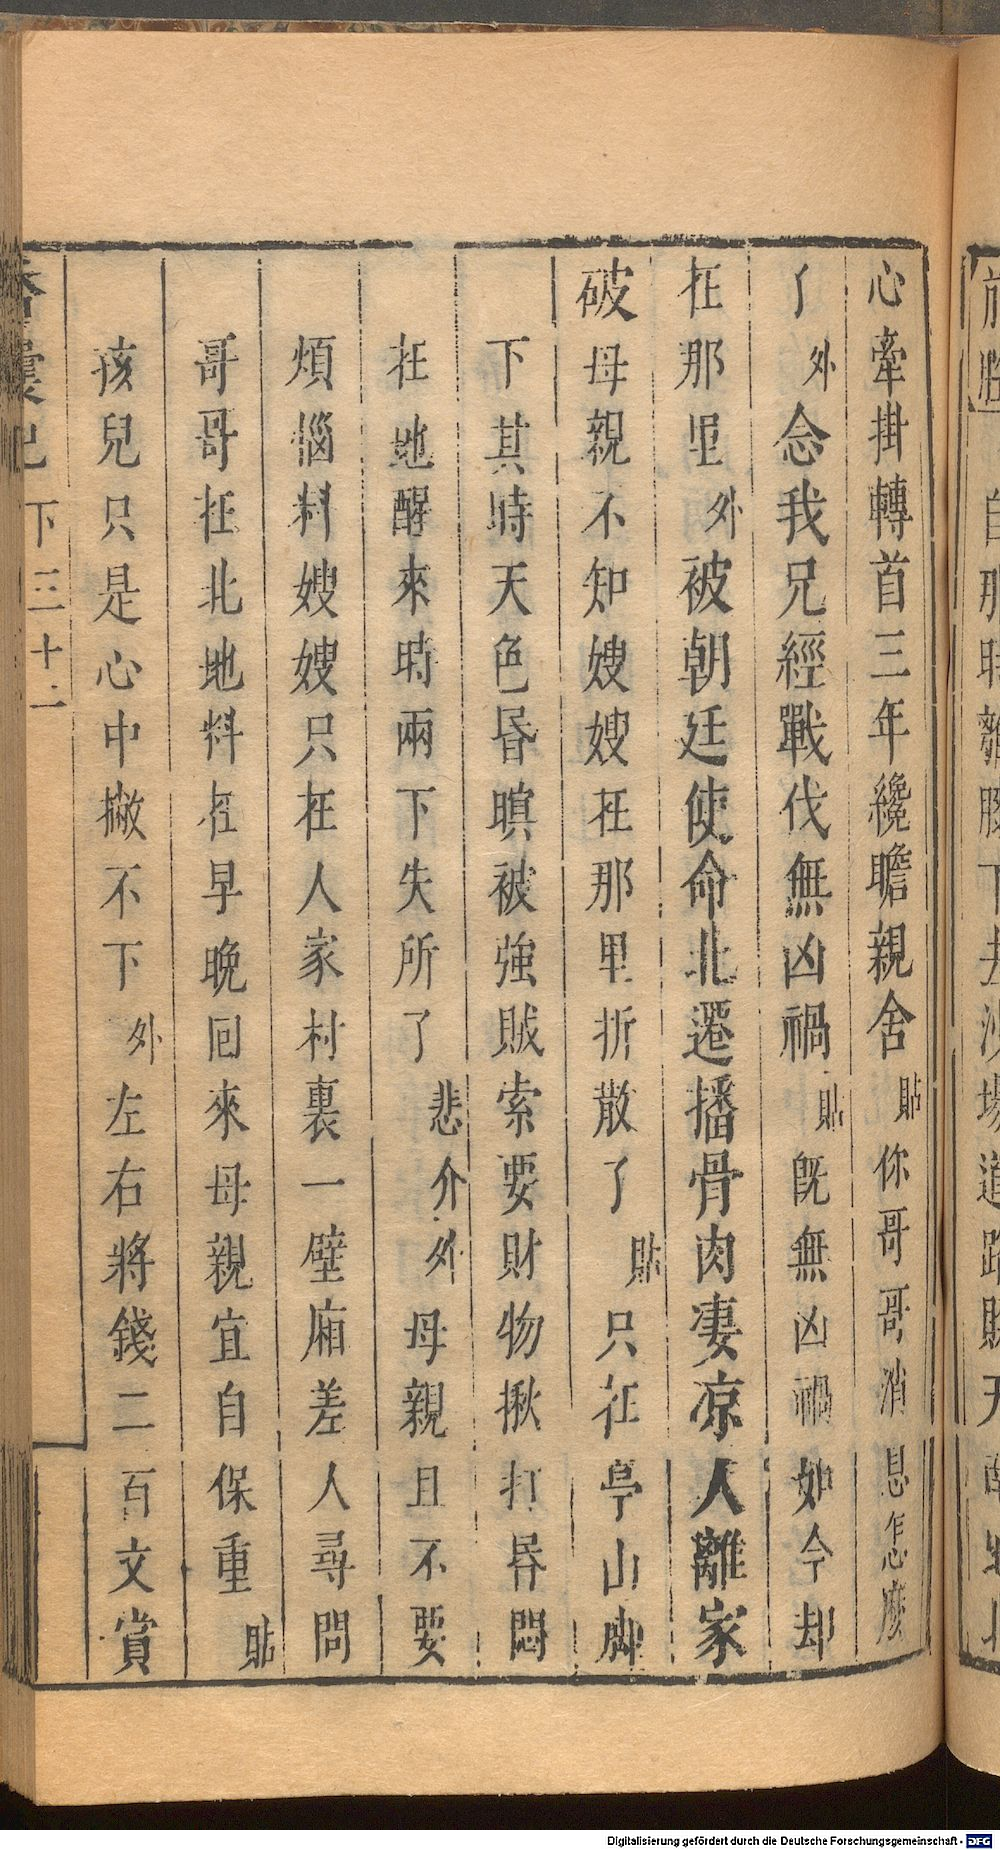 心牽掛轉首三年纔瞻親舍貼你哥哥消息怎麽
了外念我兄經戰伐無凶禍貼旣無凶禍如今却
在那里外被朝廷使命北遷播骨肉凄凉人離家
破母親不知嫂嫂在那里折散了貼只在亭山脚
下其時天色昏暝被強賊索要財物揪打昏悶
在地醒來時兩下失所了悲介外母親且不要
煩惱料嫂嫂只在人家村裏一壁廂差人尋問
哥哥在北地料在早晚囘來母親宜自保重貼
孩兒只是心中撇不下外左右將錢二百文賞
囊記 下 三十二
Digitalisierung gefördert durch die Deutsche Forschungsgemeinschaft - DFG